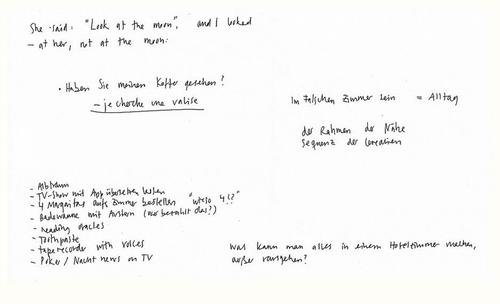 She said: "Look at the moon", and I looked
– at her, not at the moon.
• Haben Sie meinen Koffer gesehen?
– je cherche une valise
Im falschen Zimmer sein = Alltag
der Rahmen der Nähe
Sequenz der
– Albtraum
– TV-Show mit App übersetzen lassen
– 4 Margaritas aufs Zimmer bestellen "wieso 4!?"
– Badewanne mit Austern (wer bezahlt das?)
– reading oracles
– Toothpaste
– taperecorder with voices
– Poker / Nacht news on TV
Was kann man alles in einem Hotelzimmer machen,
außer rausgehen?